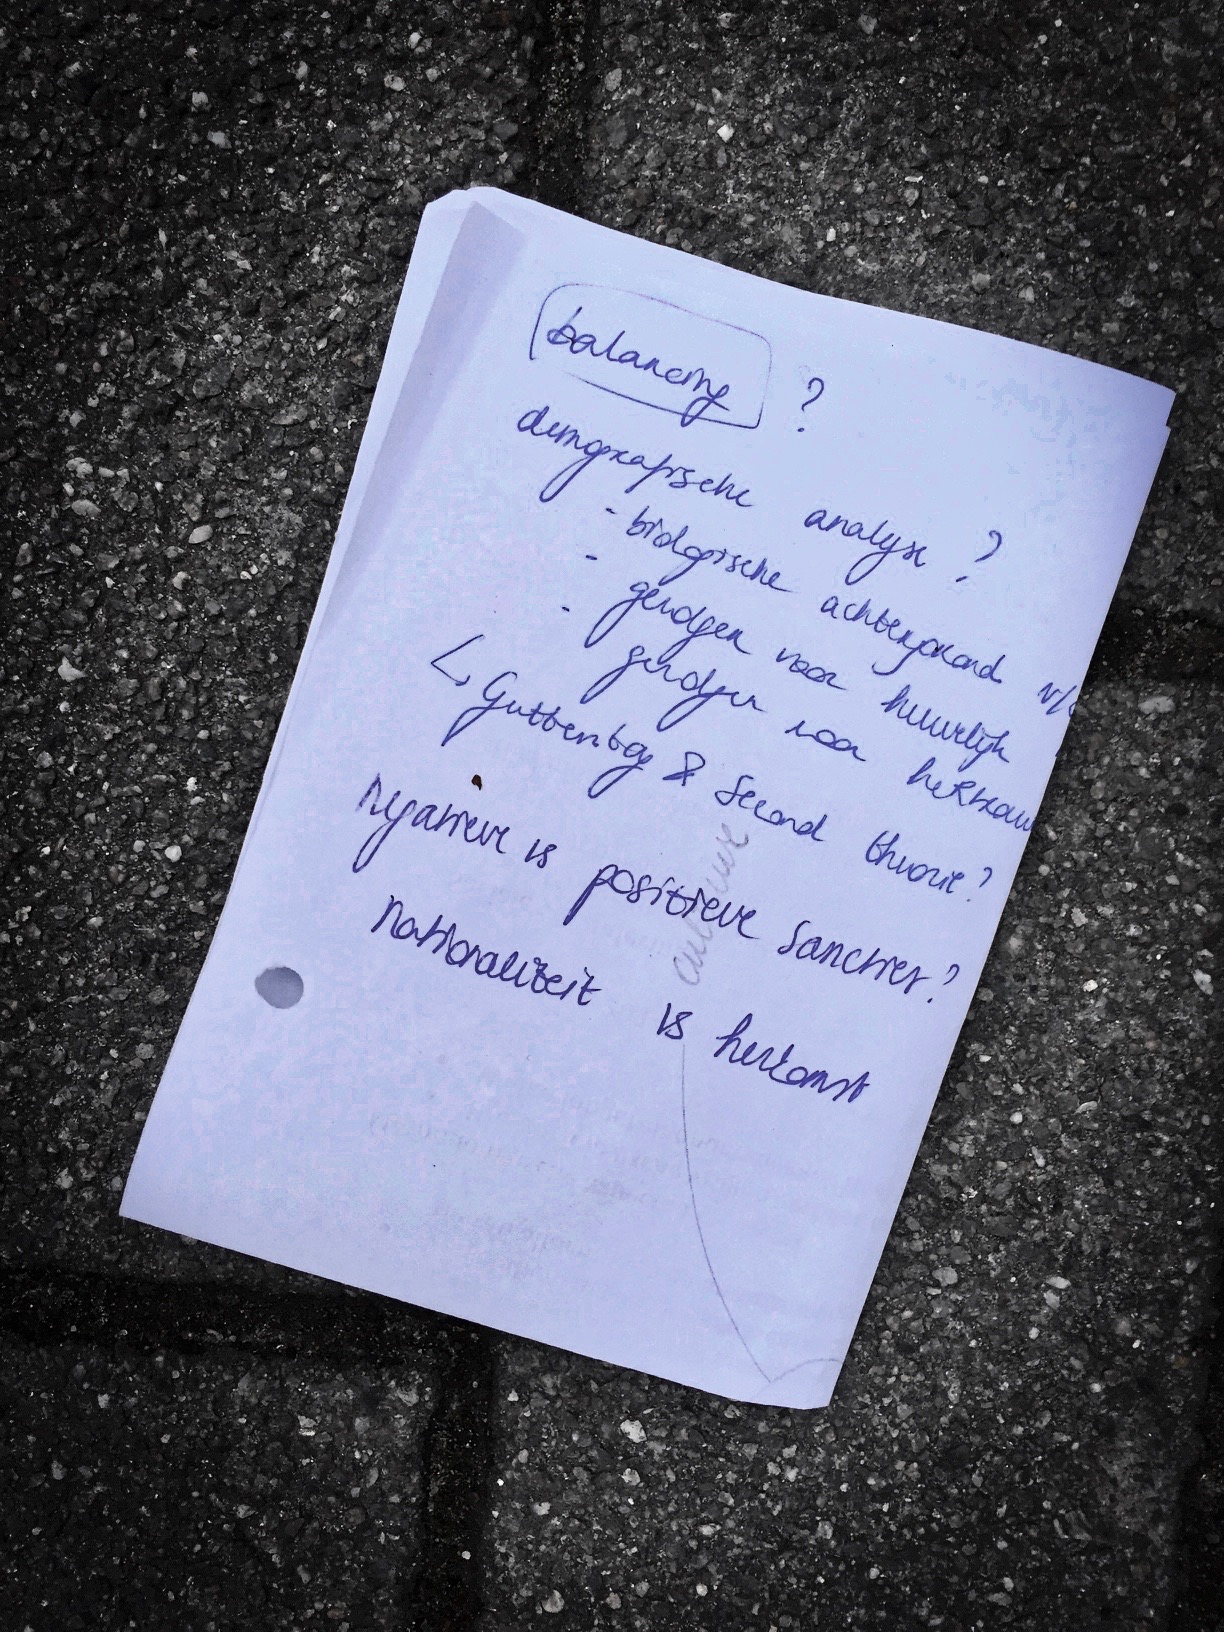 balancing ?
demografische analyse ?
- biologische achtergrond v/
- gevolgen voor huwelijk
- gevolgen voor hertrouw
↳ Guttentag & Secord theorie?
Negatieve vs positieve sancties?
nationaliteit vs herkomst
culturele